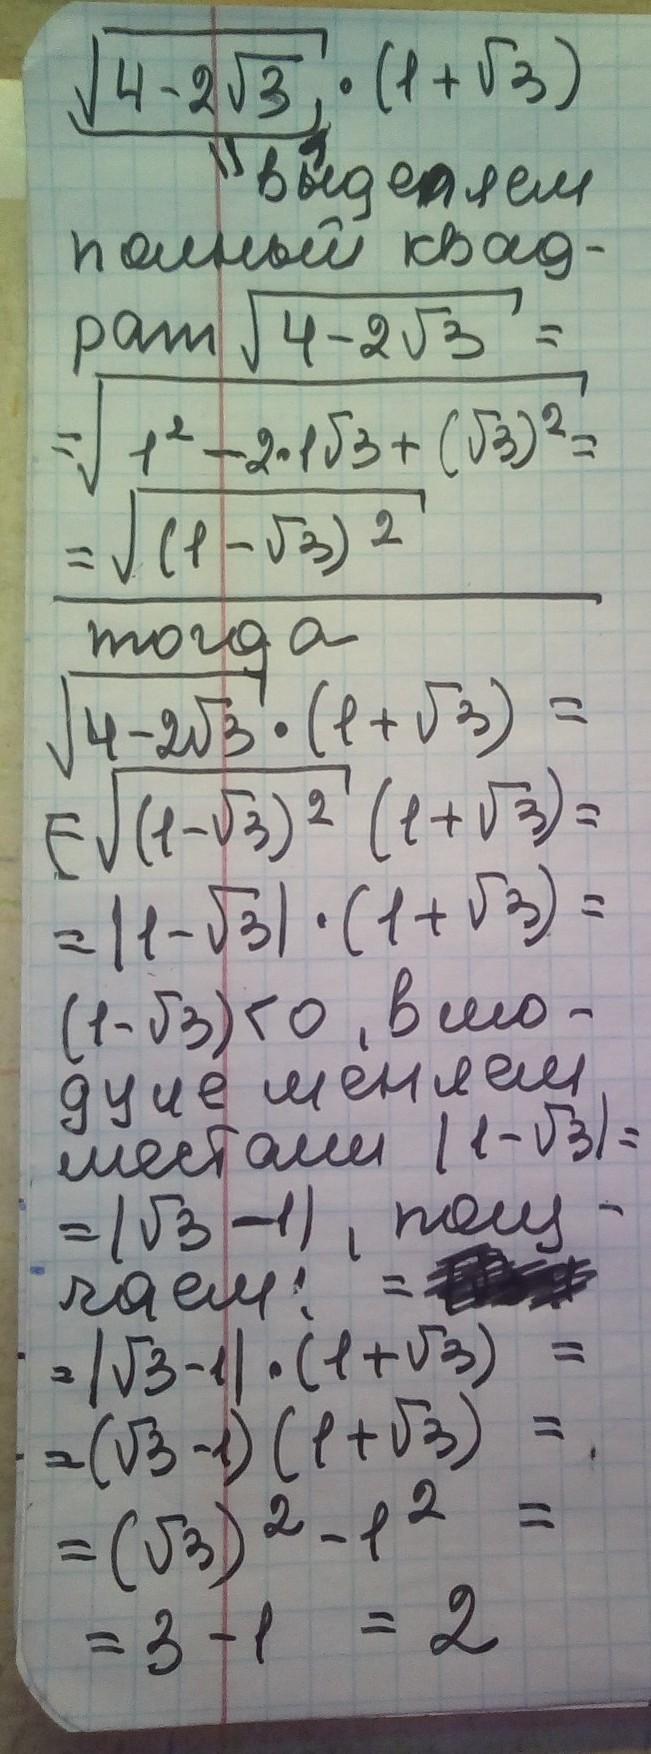 √(4-2√3) · (1+√3)
выделяем
полный квад-
рат √(4-2√3) =
= √(1² - 2·1√3 + (√3)²) =
= √((1-√3)²)
тогда
√(4-2√3) · (1+√3) =
= √((1-√3)²) (1+√3) =
= |1-√3| · (1+√3) =
(1-√3)<0, в мо-
дуле меняем
местами |1-√3| =
= |√3-1|, полу-
чаем: =
= |√3-1| · (1+√3) =
= (√3-1)(1+√3) =
= (√3)² - 1² =
= 3-1 = 2